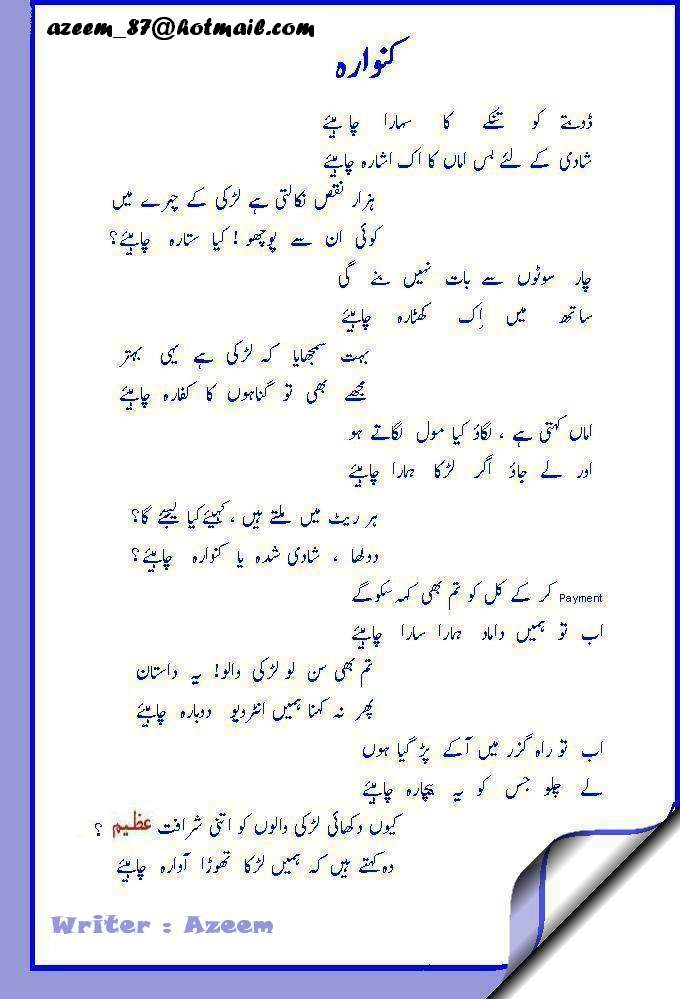 azeem_87@hotmail.com
کنوارہ
ڈوبتے کو تنکے کا سہارا چاہیئے
شادی کے لئے بس اماں کا اک اشارہ چاہیئے
ہزار نقص نکالتی ہے لڑکی کے چہرے میں
کوئی ان سے پوچھو ! کیا ستارہ چاہیئے؟
چار سوٹوں سے بات نہیں بنے گی
ساتھ میں اِک کھٹارہ چاہیئے
بہت سمجھایا کہ لڑکی ہے یہی بہتر
مجھے بھی تو گناہوں کا کفارہ چاہیئے
اماں کہتی ہے ، لگاؤ کیا مول لگاتے ہو
اور لے جاؤ اگر لڑکا ہمارا چاہیئے
ہر ریٹ میں ملتے ہیں ، کہیئے کیا لیجئے گا؟
دولھا ، شادی شدہ یا کنوارہ چاہیئے؟
Payment کر کے کل کو تم بھی کہہ سکوگے
اب تو ہمیں داماد ہمارا سارا چاہیئے
تم بھی سن لو لڑکی والو! یہ داستان
پھر نہ کہنا ہمیں انٹرویو دوبارہ چاہیئے
اب تو راہ گزر میں آکے پڑ گیا ہوں
لے چلو جس کو یہ بیچارہ چاہیئے
کیوں دکھائی لڑکی والوں کو اتنی شرافت عظیم ؟
وہ کہتے ہیں کہ ہمیں لڑکا تھوڑا آوارہ چاہیئے
Writer : Azeem